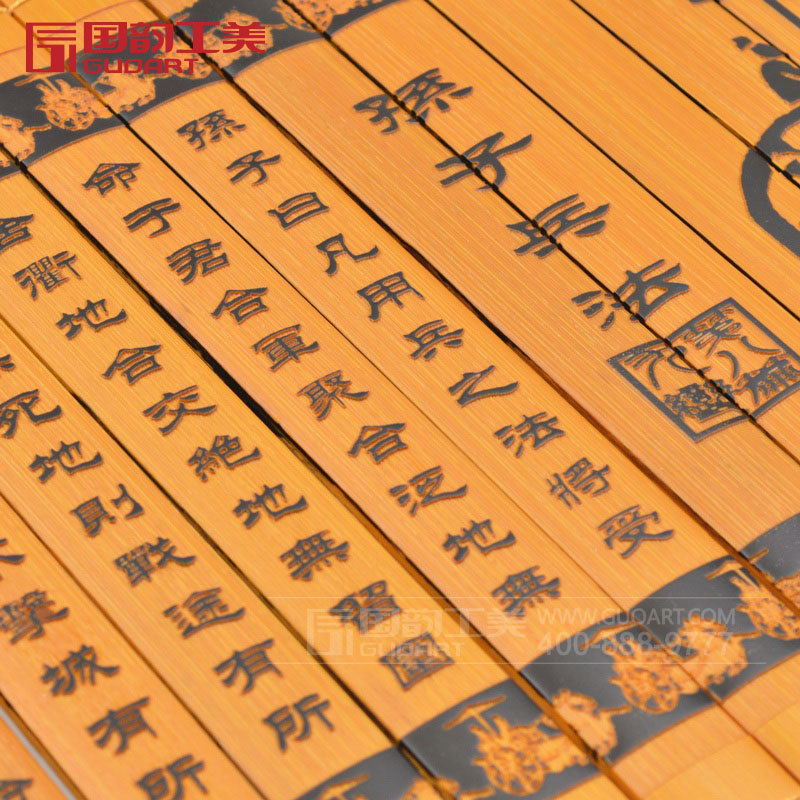 国韵工美
GUOART
孫子兵法
孫子曰凡用兵之法將受
命于君合軍聚合泛地無
舍衢地合交絕地無留圍
死地則戰途有所
擊城有所
国韵工美
GUOART
WWW.GUOART.COM
400-888-9777